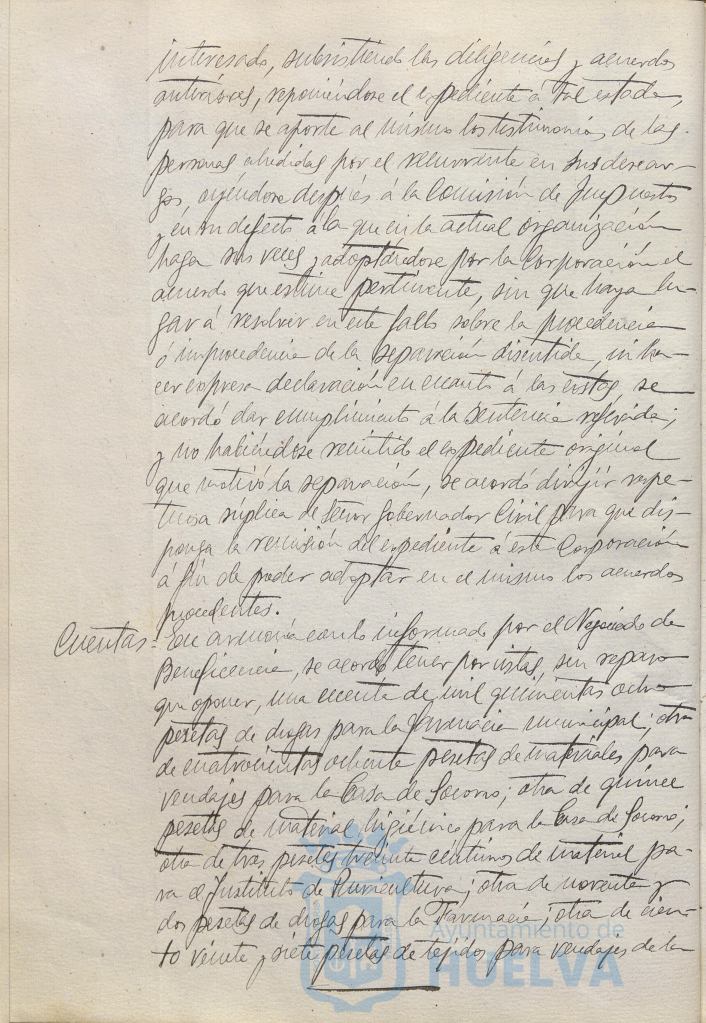 interesado, subsistiendo las diligencias y acuerdos
anteriores, reponiéndose el expediente á tal estado,
para que se aporte al mismo los testimonios de las
personas aludidas por el recurrente en sus descar-
gos, oyéndose después á la Comisión de Impuestos
y en su defecto á la que en la actual organización
haga sus veces y adoptándose por la Corporación el
acuerdo que estime pertinente, sin que haya lu-
gar á resolver en este fallo sobre la procedencia
ó improcedencia de la separación discutida, ni ha-
cer expresa declaración en cuanto á las costas, se
acordó dar cumplimiento á la sentencia referida;
y no habiéndose remitido el expediente original
que motivó la separación, se acordó dirigir respe-
tuosa súplica al Señor Gobernador Civil para que dis-
ponga la remisión del expediente á esta Corporación
á fin de poder adoptar en el mismo los acuerdos
procedentes.
Cuentas = En armonía con lo informado por el Negociado de
Beneficencia, se acordó tener por vistas, sin reparo
que oponer, una cuenta de mil quinientas ocho
pesetas de drogas para la farmacia municipal; otra
de cuatrocientas ochenta pesetas de materiales para
vendajes para la Casa de Socorro; otra de quince
pesetas de material higiénico para la Casa de Socorro;
otra de tres pesetas treinta céntimos de material pa-
ra el Instituto de Puericultura; otra de noventa y
dos pesetas de drogas para la Farmacia; otra de cien-
to veinte y siete pesetas de tejidos para vendajes de la
Ayuntamiento de
HUELVA